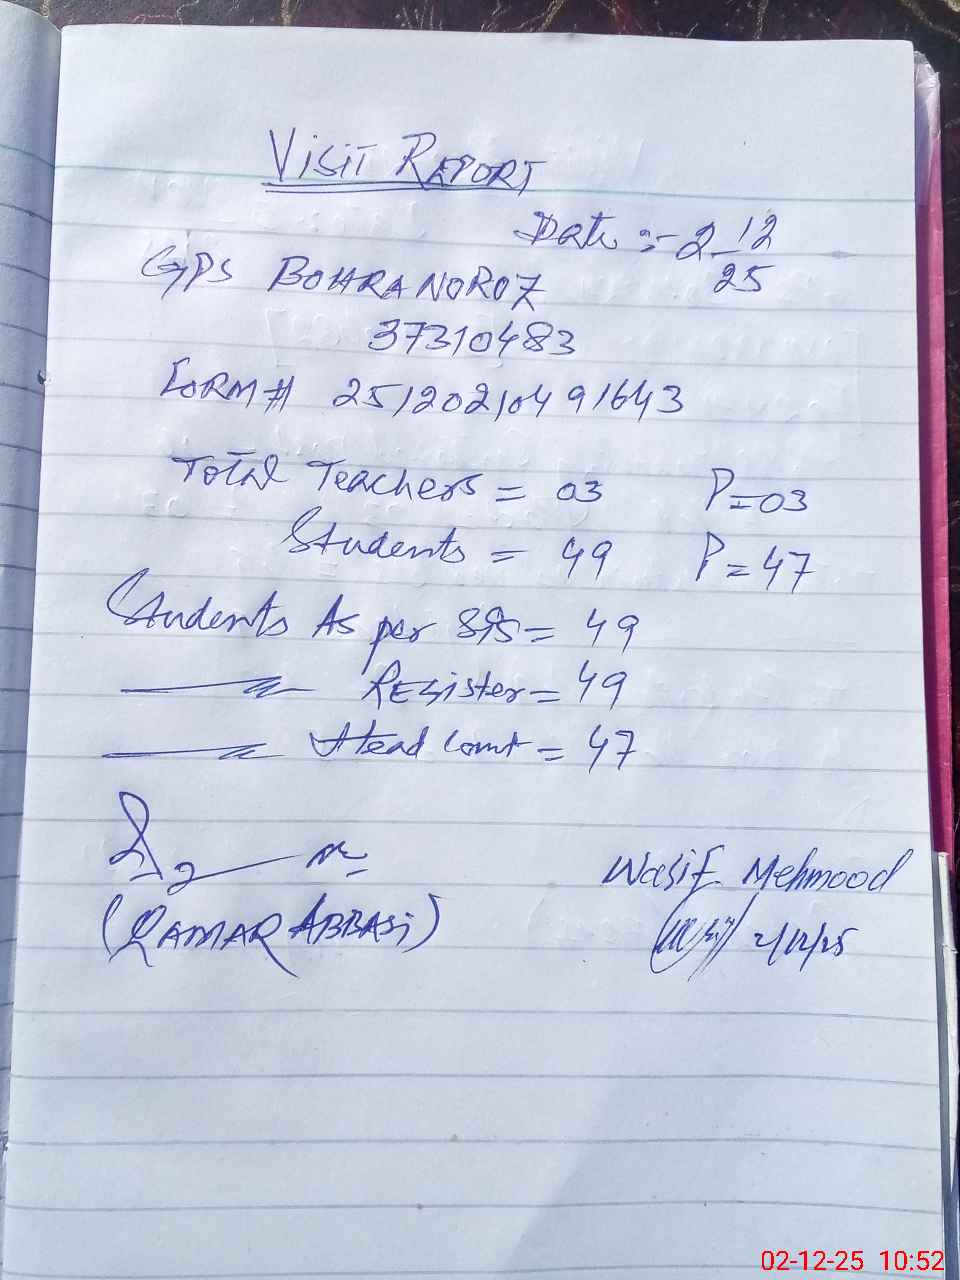 VISIT REPORT
Date :- 2-12
25
GPS BOHRA NOROZ
37310483
FORM # 25120210491643
Total Teachers = 03 P=03
Students = 49 P=47
Students As per SIS = 49
〃 Register = 49
〃 Head Count = 47
Wasif Mehmood
(QAMAR ABBASI)
2/12/25
02-12-25 10:52